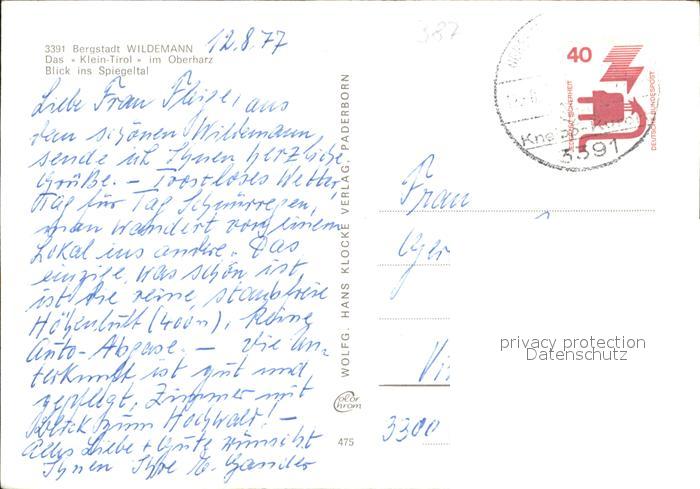 3391 Bergstadt WILDEMANN
Das « Klein-Tirol » im Oberharz
Blick ins Spiegeltal
12.8.77
387
Liebe Frau aus
dem schönen Wildemann,
sende ich Ihnen herzliche
Grüße. - Trostloses Wetter,
Tag für Tag Schnürregen,
man wandert von einem
Lokal ins andere. Das
einzige, was schön ist,
ist die reine, staubfreie
Höhenluft (400m), keine
Auto-Abgase. - Die Un-
terkunft ist gut und
gepflegt, Zimmer mit
Blick zum Hochwald! -
Alles Liebe + Gute wünscht
Ihnen Ihre
WOLFG. HANS KLOCKE VERLAG, PADERBORN
Color
chrom
475
40
JEDERZEIT SICHERHEIT
DEUTSCHE BUNDESPOST
3391
Frau
Ger
3300
privacy protection
Datenschutz